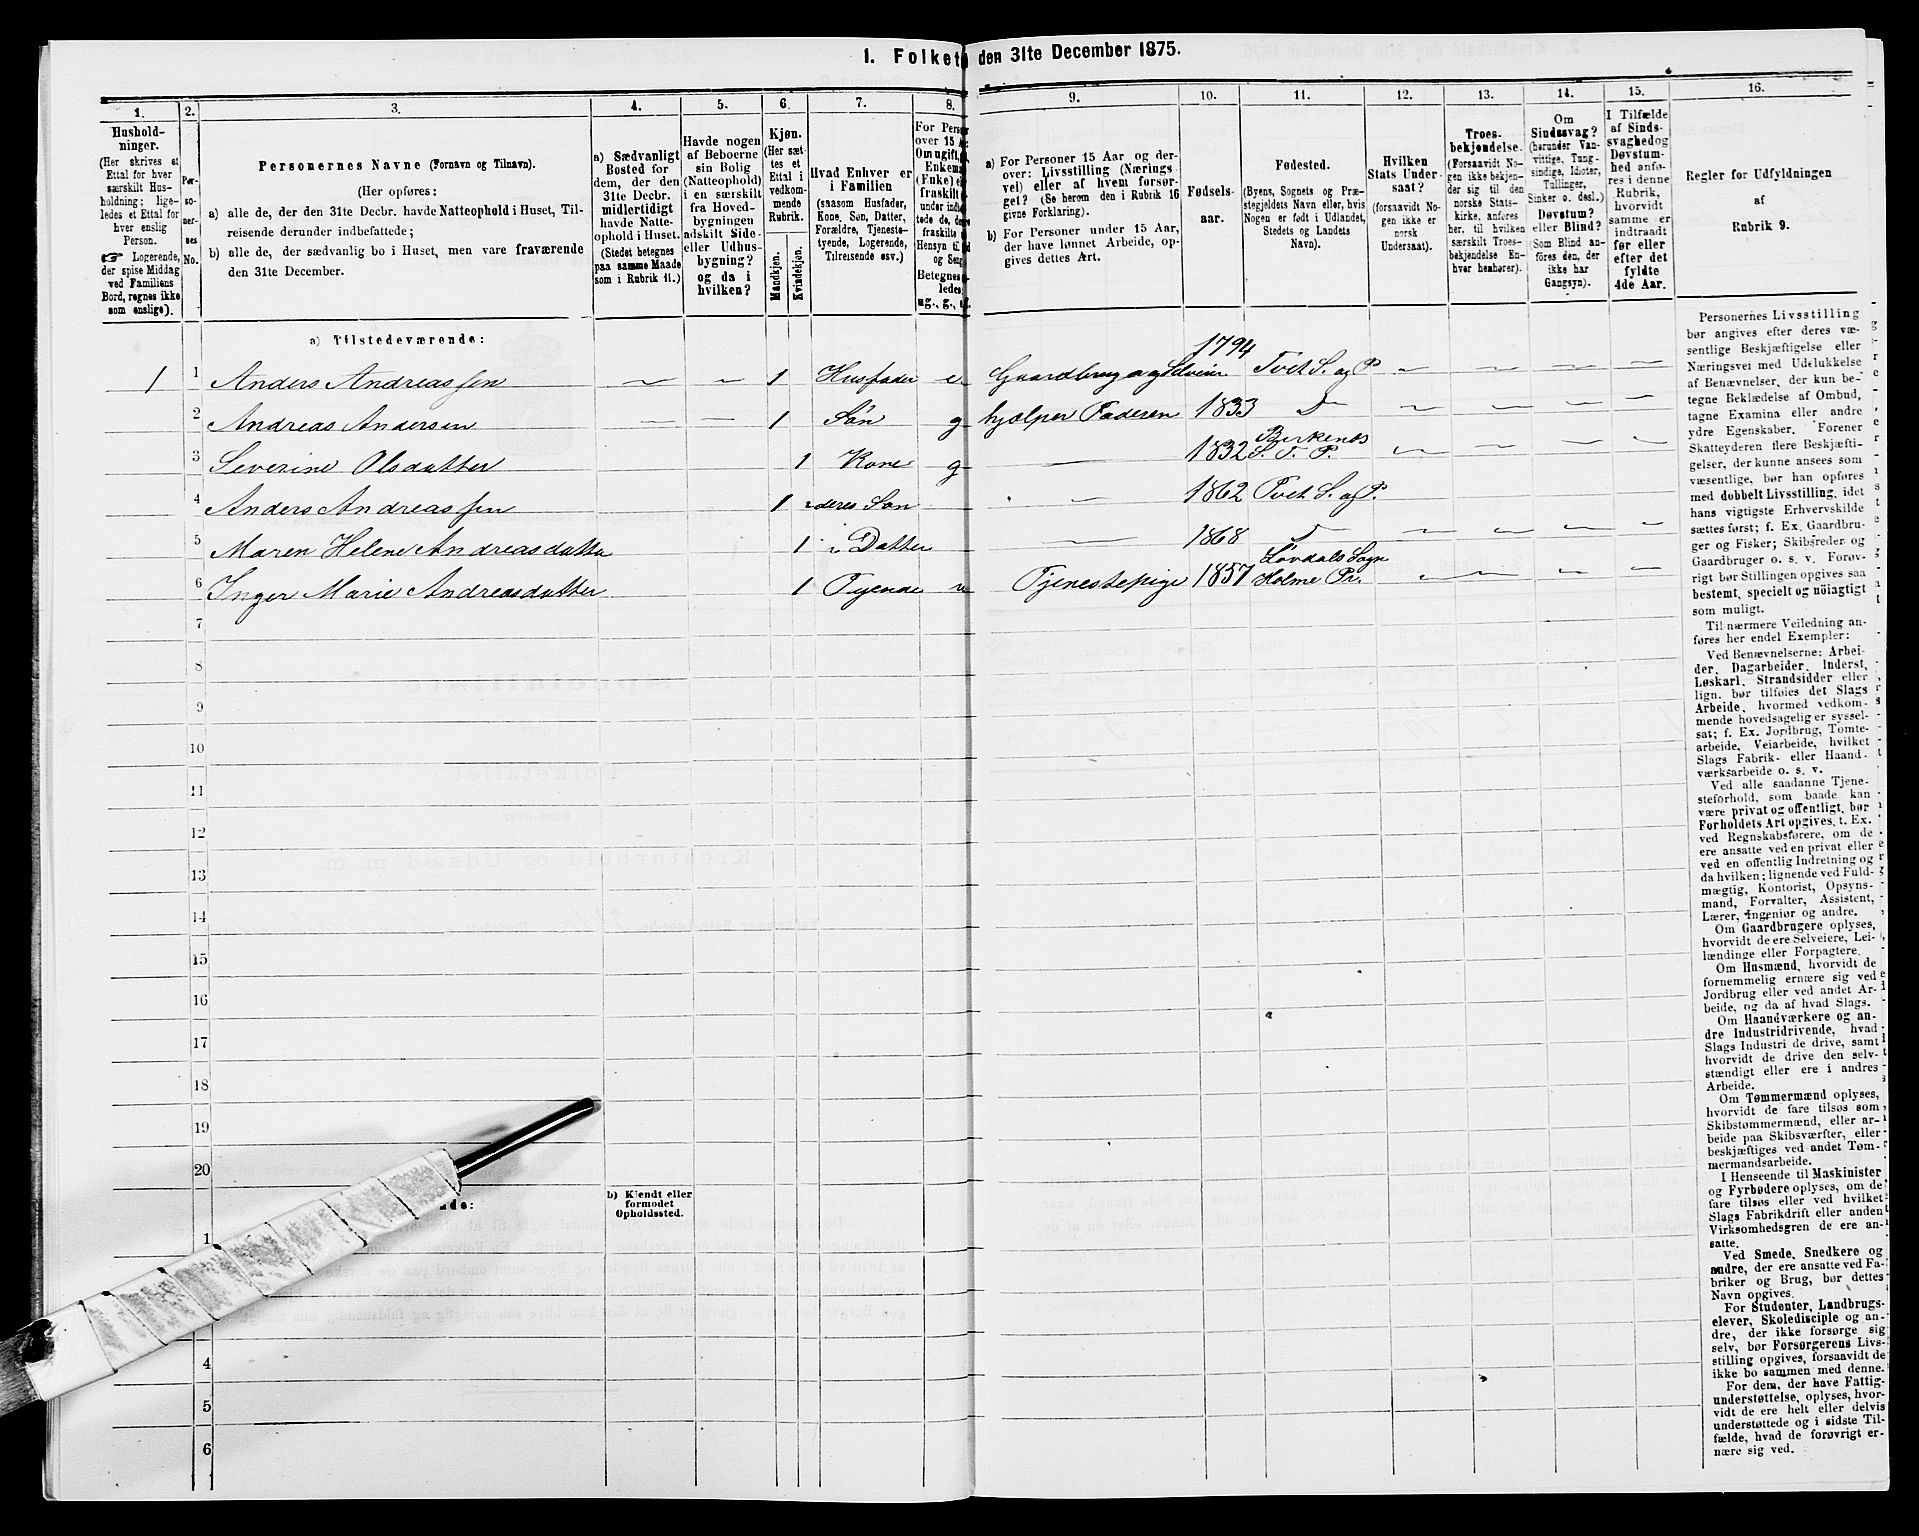 1. Folket den 31te December 1875.
1.
Hushold-
ninger.
(Her skrives et
Ettal for hver
særskilt Hus-
holdning; lige-
ledes et Ettal for
hver enslig
Person.
☞ Logerende,
der spise Middag
ved Familiens
Bord, regnes ikke
som enslige).
2.
Per-
so-
ner-
nes
No.
3.
Personernes Navne (Fornavn og Tilnavn).
(Her opføres:
a) alle de, der den 31te Decbr. havde Natteophold i Huset, Til-
reisende derunder indbefattede;
b) alle de, der sædvanlig bo i Huset, men vare fraværende
den 31te December.
4.
a) Sædvanligt
Bosted for
dem, der den
31te Decbr.
midlertidigt
havde Natte-
ophold i Huset.
(Stedet betegnes
paa samme Maade
som i Rubrik 11.)
5.
Havde nogen
af Beboerne
sin Bolig
(Natteophold)
i en særskilt
fra Hoved-
bygningen
adskilt Side-
eller Udhus-
bygning?
og da i
hvilken?
6.
Kjøn.
(Her sæt-
tes et
Ettal i
vedkom-
mende
Rubrik.
Mandkjøn.
Kvindekjøn.
7.
Hvad Enhver er
i Familien
(saasom Husfader,
Kone, Søn, Datter,
Forældre, Tjeneste-
tyende, Logerende,
Tilreisende osv.)
8.
For Person
over 15 A
Om ugift,
Enkema
(Fuke) e
fraskilt
under indb
tede de, de
fraskilte
Hensyn til
og Seng
Betegnes
ledes:
ug., g., e
9.
a) For Personer 15 Aar og der-
over: Livsstilling (Nærings-
vei) eller af hvem forsør-
get? (Se herom den i Rubrik 16
givne Forklaring).
b) For Personer under 15 Aar,
der have lønnet Arbeide, op-
gives dettes Art.
10.
Fødsels-
aar.
11.
Fødested.
(Byens, Sognets og Præ-
stegjeldets Navn eller, hvis
Nogen er født i Udlandet,
Stedets og Landets
Navn).
12.
Hvilken
Stats Under-
saat?
(forsaavidt No-
gen ikke er
norsk
Undersaat).
13.
Troes-
bekjendelse.
(Forsaavidt No-
gen ikke bekjen-
der sig til den
norske Stats-
kirke, anføres
her, til hvilken
særskilt Troes-
bekjendelse En-
hver henhører).
14.
Om
Sindssvag?
(herunder Van-
vittige, Tung-
sindige, Idioter,
Tullinger,
Sinker o. desl.)
Døvstum?
eller Blind?
(Som Blind an-
føres den, der
ikke har
Gangsyn).
15.
I Tilfælde
af Sinds-
svaghed og
Døvstum-
hed anfø-
res i denne
Rubrik,
hvorvidt
samme er
indtraadt
før eller
efter det
fyldte
4de Aar.
16.
Regler for Udfyldningen
af
Rubrik 9.
a) Tilstedeværende:
1 1 Anders Andreassen — — 1 Husfader e Gaardbruger og Selveier 1794 Tvet S. og P. — — — —
2 Andreas Andersen — — 1 Søn g hjælper Faderen 1833 D — — — —
3 Severine Olsdatter 1 Kone g — 1832 Birkenæs S. T. P. — — — —
4 Anders Andreassen 1 deres Søn — 1862 Tvet S. og P.
5 Maren Helene Andreasdatter 1 " Datter — 1868 — — — —
6 Inger Marie Andreasdatter 1 Tyende u Tjenestepige 1857 Løvdals Sogn Holme Pr. — — — —
7
8
9
10
11
12
13
14
15
16
17
18
19
20
de:
b) Kjendt eller
formodet
Opholdssted.
1
4
5
6
Personernes Livsstilling
bør angives efter deres væ-
sentlige Beskjæftigelse eller
Næringsvei med Udelukkelse
af Benævnelser, der kun be-
tegne Beklædelse af Ombud,
tagne Examina eller andre
ydre Egenskaber. Forener
Skatteyderen flere Beskjæfti-
gelser, der kunne ansees som
væsentlige, bør han opføres
med dobbelt Livsstilling, idet
hans vigtigste Erhvervskilde
sættes først; f. Ex. Gaardbru-
ger og Fisker; Skibsreder og
Gaardbruger o. s. v. Forøv-
rigt bør Stillingen opgives saa
bestemt, specielt og nöiagtigt
som muligt.
Til nærmere Veiledning an-
føres her endel Exempler:
Ved Benævnelserne: Arbei-
der, Dagarbeider, Inderst,
Løskarl, Strandsidder eller
lign. bør tilføies det Slags
Arbeide, hvormed vedkom-
mende hovedsagelig er syssel-
sat; f. Ex. Jordbrug, Tomte-
arbeide, Veiarbeide, hvilket
Slags Fabrik- eller Haand-
værksarbeide o. s. v.
Ved alle saadanne Tjene-
steforhold, som baade kan
være privat og offentligt, bør
Forholdets Art opgives, t. Ex.
ved Regnskabsførere, om de
ere ansatte ved en privat eller
ved en offentlig Indretning og
da hvilken; lignende ved Fuld-
mægtig, Kontorist, Opsyns-
mand, Forvalter, Assistent,
Lærer, Ingeniør og andre.
Om Gaardbrugere oplyses,
hvorvidt de ere Selveiere, Lei-
lændinge eller Forpagtere.
Om Husmænd, hvorvidt de
fornemmelig ernære sig ved
Jordbrug eller ved andet Ar-
beide, og da af hvad Slags.
Om Haandværkere og an-
dre Industridrivende, hvad
Slags Industri de drive, samt
hvorvidt de drive den selv-
stændigt eller ere i andres
Arbeide.
Om Tømmermænd oplyses,
hvorvidt de fare tilsøs som
Skibstømmermænd, eller ar-
beide paa Skibsværfter, eller
beskjæftiges ved andet Tøm-
mermandsarbeide.
I Henseende til Maskinister
og Fyrbødere oplyses, om de
fare tilsøs eller ved hvilket
Slags Fabrikdrift eller anden
Virksomhedsgren de ere an-
satte.
Ved Smede, Snedkere og
andre, der ere ansatte ved Fa-
briker og Brug, bør dettes
Navn opgives.
For Studenter, Landbrugs-
elever, Skoledisciple og an-
dre, der ikke forsørge sig
selv, bør Forsørgerens Livs-
stilling opgives, forsaavidt de
ikke bo sammen med denne.
For dem, der have Fattig-
understøttelse, oplyses, hvor-
vidt de ere helt eller delvis
understøttede og i sidste Til-
fælde, hvad de forøvrigt er-
nære sig ved.